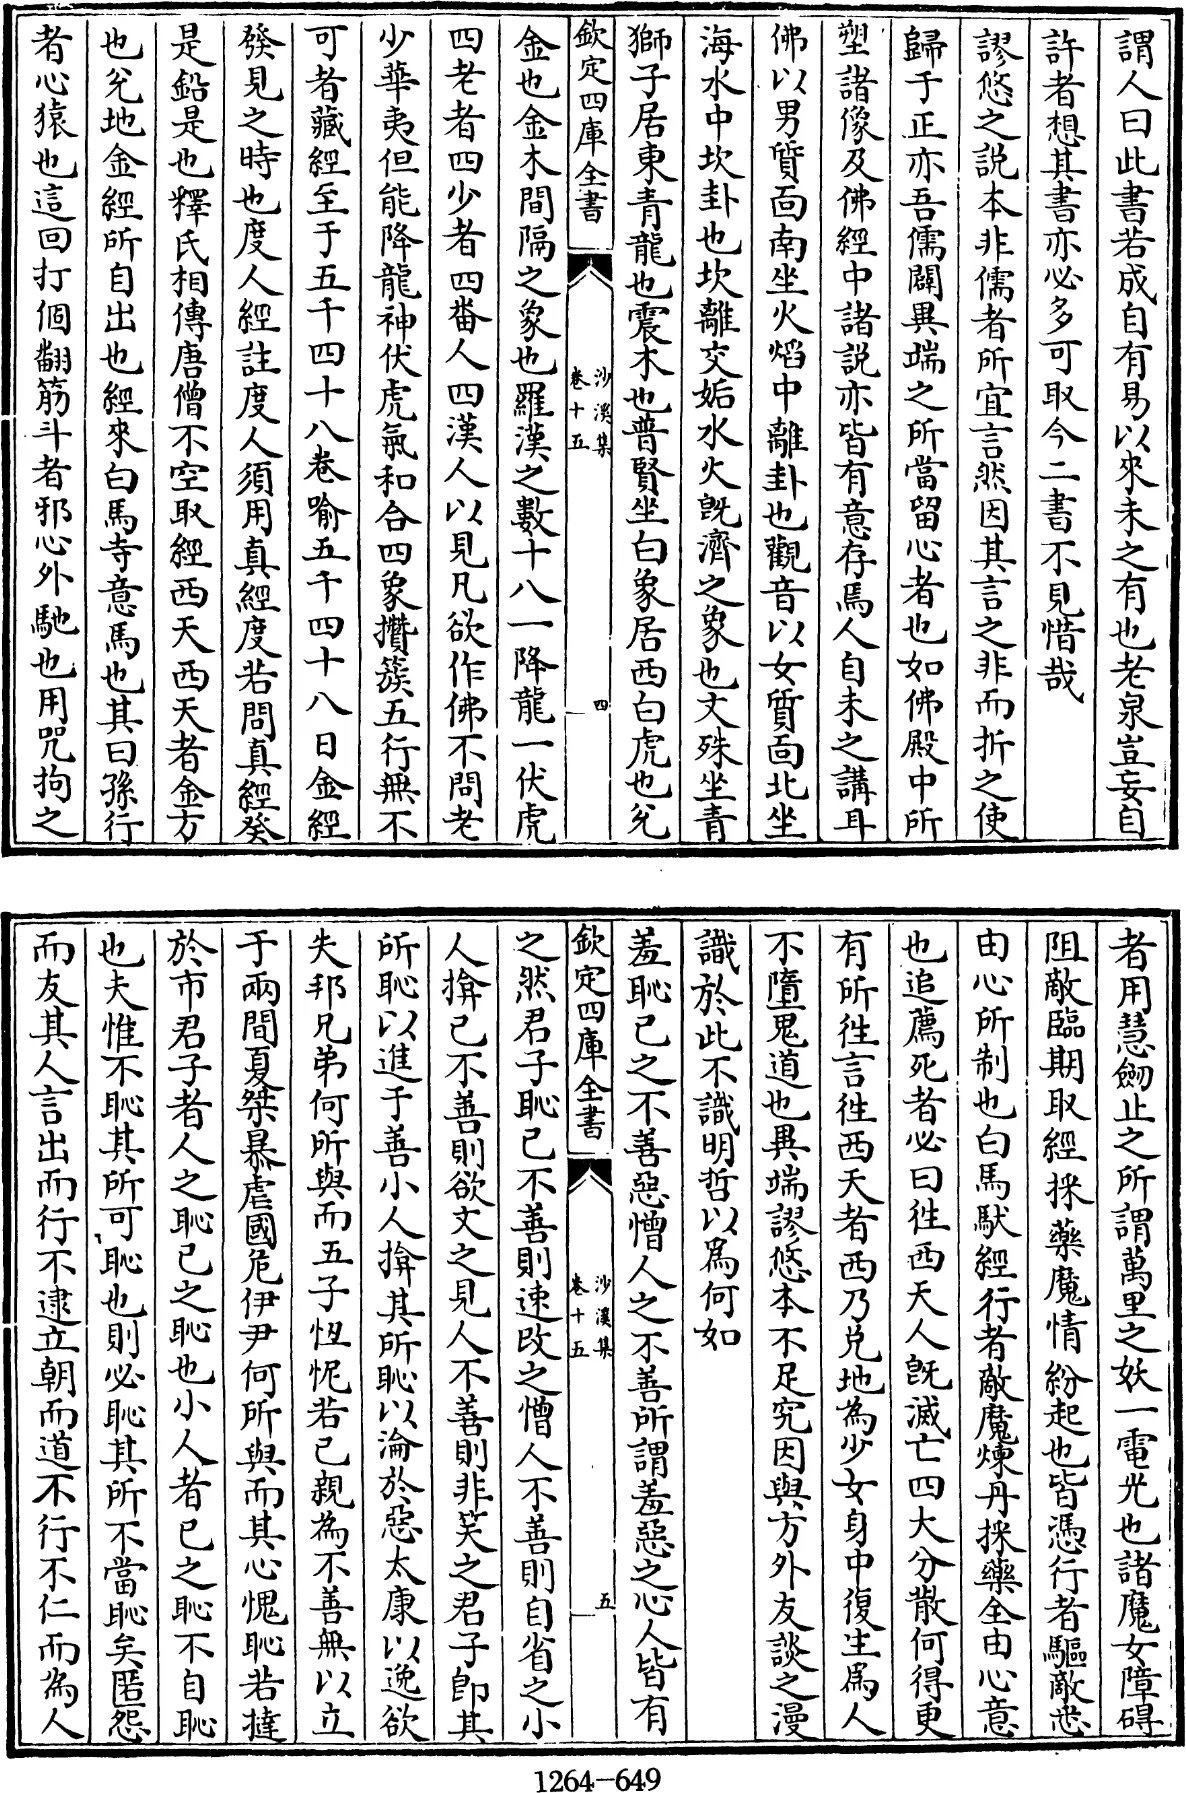 謂人曰此書若成自有易以來未之有也老泉豈妄自
許者想其書亦必多可取今二書不見惜哉
謬悠之説本非儒者所宜言然因其言之非而折之使
歸于正亦吾儒闢異端之所當留心者也如佛殿中所
塑諸像及佛經中諸説亦皆有意存焉人自未之講耳
佛以男質面南坐火焰中離卦也觀音以女質面北坐
海水中坎卦也坎離交姤水火既濟之象也文殊坐青
獅子居東青龍也震木也普賢坐白象居西白虎也兊
欽定四庫全書
沙溪集
卷十五
四
金也金木間隔之象也羅漢之數十八一降龍一伏虎
四老者四少者四畨人四漢人以見凡欲作佛不問老
少華夷但能降龍神伏虎氣和合四象攢簇五行無不
可者藏經至于五千四十八卷喻五千四十八日金經
發見之時也度人經註度人須用真經度若問真經癸
是鉛是也釋氏相傳唐僧不空取經西天西天者金方
也兊地金經所自出也經來白馬寺意馬也其曰孫行
者心猿也這回打個翻筋斗者邪心外馳也用咒拘之
者用慧劒止之所謂萬里之妖一電光也諸魔女障碍
阻敵臨期取經採藥魔情紛起也皆憑行者驅敵悉
由心所制也白馬馱經行者敵魔煉丹採藥全由心意
也追薦死者必曰徃西天人既滅亡四大分散何得更
有所徃言徃西天者西乃兊地為少女身中復生為人
不墮鬼道也異端謬悠本不足究因與方外友談之漫
識於此不識明哲以為何如
羞恥已之不善惡憎人之不善所謂羞惡之心人皆有
欽定四庫全書
沙溪集
卷十五
五
之然君子恥已不善則速改之憎人不善則自省之小
人揜已不善則欲文之見人不善則非笑之君子即其
所恥以進于善小人揜其所恥以淪於惡太康以逸欲
失邦兄弟何所與而五子忸怩若已親為不善無以立
于兩間夏桀暴虐國危伊尹何所與而其心愧恥若撻
於市君子者人之恥已之恥也小人者已之恥不自恥
也夫惟不恥其所可恥也則必恥其所不當恥矣匿怨
而友其人言出而行不逮立朝而道不行不仁而為人
1264-649